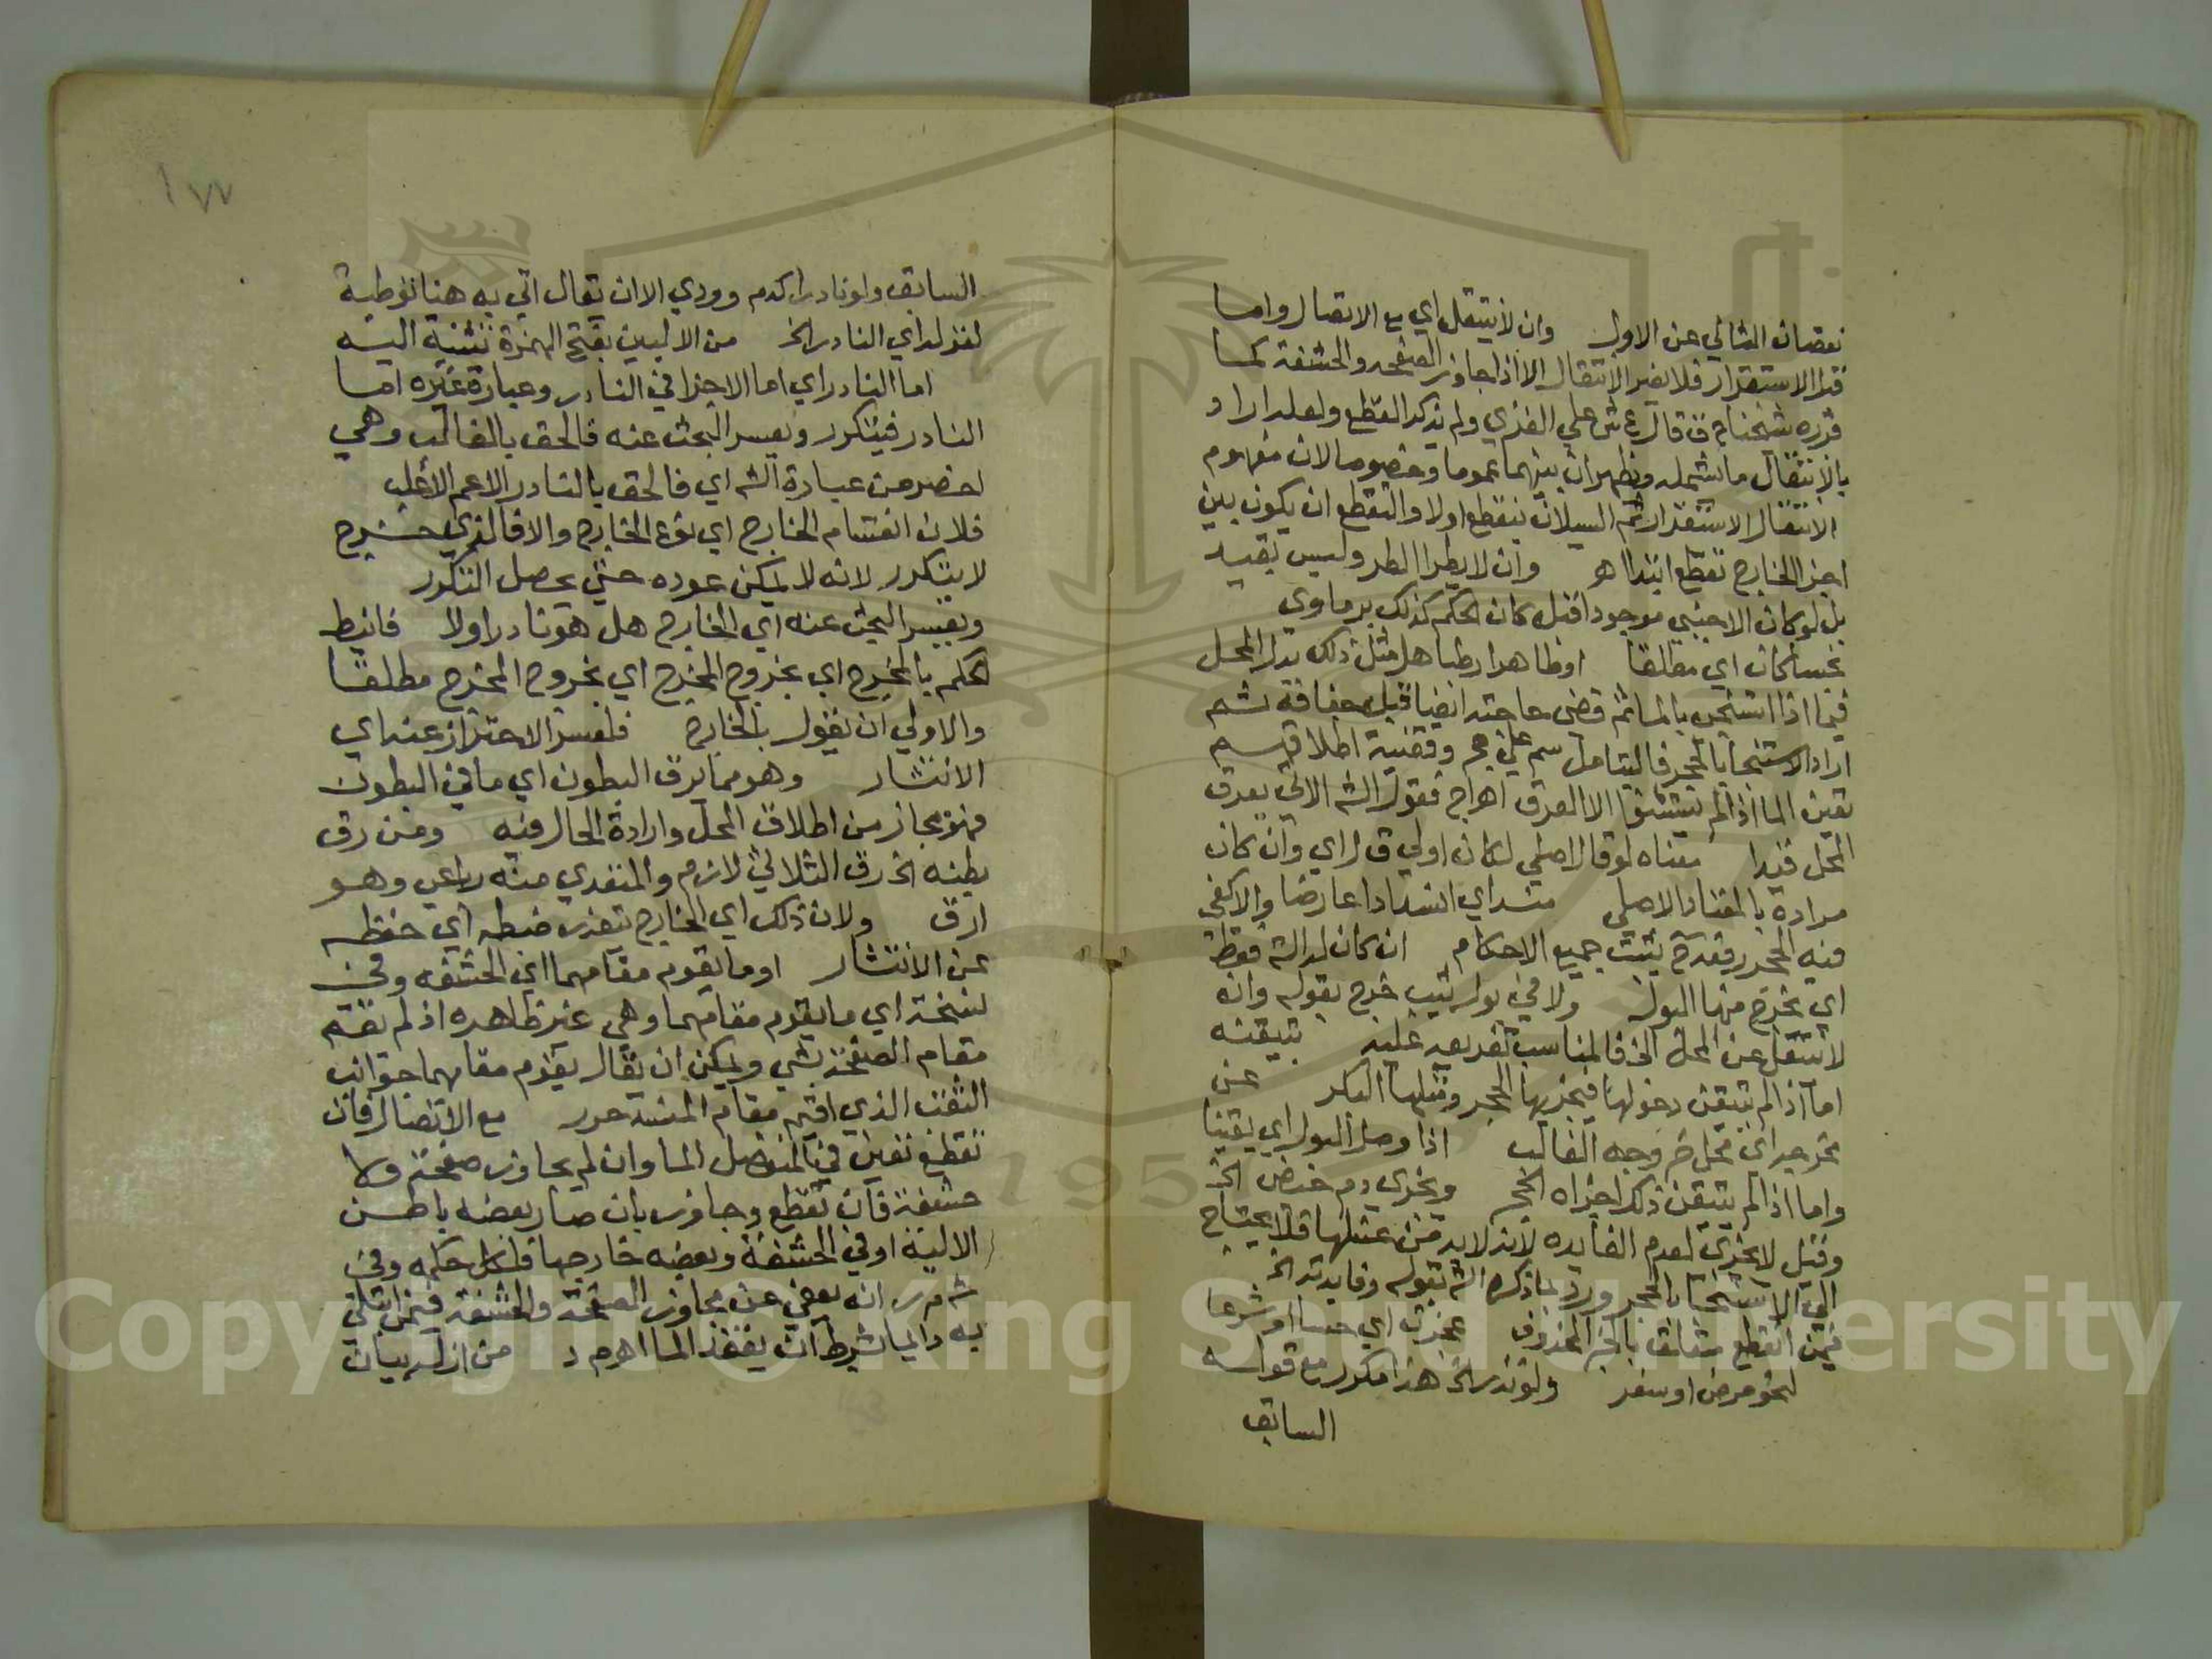 نقصان الثاني عن الاول وان لا ينتقل اي مع الاتصال واما
قبل الاستقرار فلا يضر الانتقال الا اذا جاوز الصفحه والحشفة كما
قرره شيخنا ح ف قال ع ش علي الغزي ولم يذكر التقطع ولعله اراد
بالانتقال ما يشمله ويظهر ان بينهما عموما وخصوصا لان مفهوم
الانتقال الاستقرار ثم السيلان بتقطع اولا والتقطع ان يكون بين
اجزا الخارج تقطع ابتدا اهـ وان لا يطرا الطرو ليس بقيد
بل لو كان الاجنبي موجودا قبل كان الحكم كذلك برماوي
نجسا كان اي مطلقا او طاهرا رطبا هل مثل ذلك بلل المحل
فيما اذا استنجي بالما ثم قضي حاجته ايضا قبل جفافه ثم
اراد الاستنجا بالحجر فاليتامل سم علي حج وقضية اطلاقهم
تعين الما اذا لم يستثنوا الا العرق اهـ اج فقول الش الاتي بعرق
المحل قيد معناه لو قال اصلي لكان اولي ق ل اي وان كان
مراده بالمعتاد الاصلي منسد اي انسدادا عارضا والا كفي
فيه الحجر فقد ح يثبت جميع الاحكام ان كان له الة فقط
اي يخرج منها البول ولا في بول ثيب خرج بقوله وان
لا ينتقل عن المحل الخ فالمناسب تفريعه عليه بتيقنه
اما اذا لم يتيقن دخولها فيجزيها الحجر ومثلها البكر عن
مخرجه اي محل خروجه الغالب اذا وصل البول اي يقينا
واما اذا لم يتيقن ذلك اجزاه الحجر ويجزي دم حيض الخ
وقيل لا يجزي لعدم الفايده لانه لا بد من غسلها فلا يحتاج
الي الاستنجا بالحجر ورد بما ذكره الش بقوله وفايدته الخ
فيمن انقطع متعلق بالخبر المحذوف عجزت اي حسا او شرعا
لنحو مرض او سفر ولو ندر الخ هذا مكرر مع قوله
السابق
١٧٧
السابق ولو نادرا كدم وودي الا ان يقال اتي به هنا توطية
لقوله اي النادر الخ من الاليين بفتح الهمزة تثنية اليه
اما النادر اي اما الاجزا في النادر وعبارة غيره اما
النادر فيتكرر ويعسر البحث عنه فالحق بالغالب وهي
اخصر من عبارة الش اي فالحق بالنادر الاعم الاغلب
فلان انقسام الخارج اي نوع الخارج والا فالذي خرج
لا يتكرر لانه لا يمكن عوده حتي يحصل التكرر
ويعسر البحث عنه اي الخارج هل هو نادر اولا فانيط
الحكم بالمخرج اي بخروج المخرج اي بخروج المخرج مطلقا
والاولي ان يقول بالخارج فلعسر الاحتراز عنه اي
الانتشار وهو مما يرق البطون اي ما في البطون
فهو مجاز من اطلاق المحل وارادة الحال فيه ومن رق
بطنه الخ رق الثلاثي لازم والمتعدي منه رباعي وهو
ارق ولان ذلك اي الخارج يتعذر ضبطه اي حفظه
عن الانتشار او ما يقوم مقامهما اي الحشفه وفي
نسخة اي ما يقوم مقامهما وهي غير ظاهره اذ لم يقم
مقام الصفحة شي ويمكن ان يقال يقوم مقامهما جوانب
الثقب الذي اقيم مقام المنسد حرر مع الاتصال فان
تقطع تعين في المنفصل الما وان لم يجاوز صفحة ولا
حشفة فان تقطع وجاوز بان صار بعضه باطن
الالية او في الحشفة وبعضه خارجها فلكل حكمه وفي
ش م ر انه يعفي عن مجاوز الصفحة والحشفة فيمن ابتلي
به دايما بشرط ان يفقد الما اهـ م د من ازله بيان
Copyright © King Saud University
195